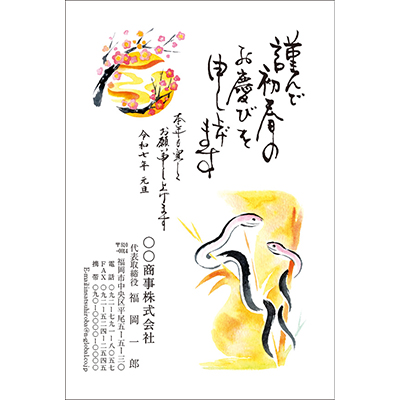 謹んで
初春の
お慶びを
申し上げ
ます
本年も宜しく
お願い申し上げます
令和七年 元旦
〇〇商事株式会社
代表取締役 福岡一郎
福岡市中央区平尾五ー五ー三〇
電話 〇九二ー七九一ー八〇五七
FAX 〇九二ー五二四ー二五四五
携帯 〇九〇ー〇〇〇〇ー〇〇〇〇